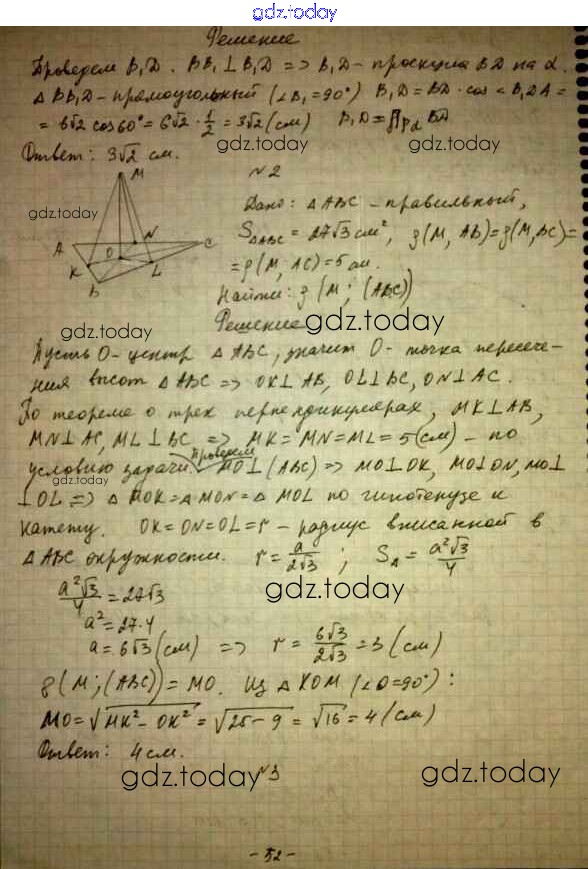 gdz.today
Решение
Проведем B₁D. BB₁⊥B₁D => B₁D - проекция BD на α.
△BB₁D - прямоугольный (∠B₁=90°) B₁D = BD · cos∠B₁DA =
= 6√2 cos60° = 6√2 · 1/2 = 3√2 (см) B₁D = Пр_α BD
gdz.today gdz.today
Ответ: 3√2 см.
N2
M
gdz.today
A N C
K O L
B
Дано: △ABC - правильный,
S_△ABC = 27√3 см², ρ(M, AB)=ρ(M,BC)=
=ρ(M, AC)=5 см.
Найти: ρ(M; (ABC))
gdz.today
Решение gdz.today
Пусть O - центр △ABC, значит O - точка пересече-
ния высот △ABC => OK⊥AB, OL⊥BC, ON⊥AC.
По теореме о трех перпендикулярах, MK⊥AB,
MN⊥AC, ML⊥BC => MK=MN=ML=5(см) - по
условию задачи. Проведем MO⊥(ABC) => MO⊥OK, MO⊥ON, MO⊥
gdz.today gdz.today
⊥OL => △MOK=△MON=△MOL по гипотенузе и
катету. OK=ON=OL=r - радиус вписанной в
△ABC окружности. r = a/2√3 ; S_△ = a²√3/4
a²√3/4 = 27√3
gdz.today
a² = 27·4
a = 6√3 (см) => r = 6√3/2√3 = 3 (см)
ρ(M;(ABC)) = MO. Из △KOM (∠O=90°):
MO = √MK²-OK² = √25-9 = √16 = 4 (см)
Ответ: 4 см.
gdz.today gdz.today
N3
- 52 -